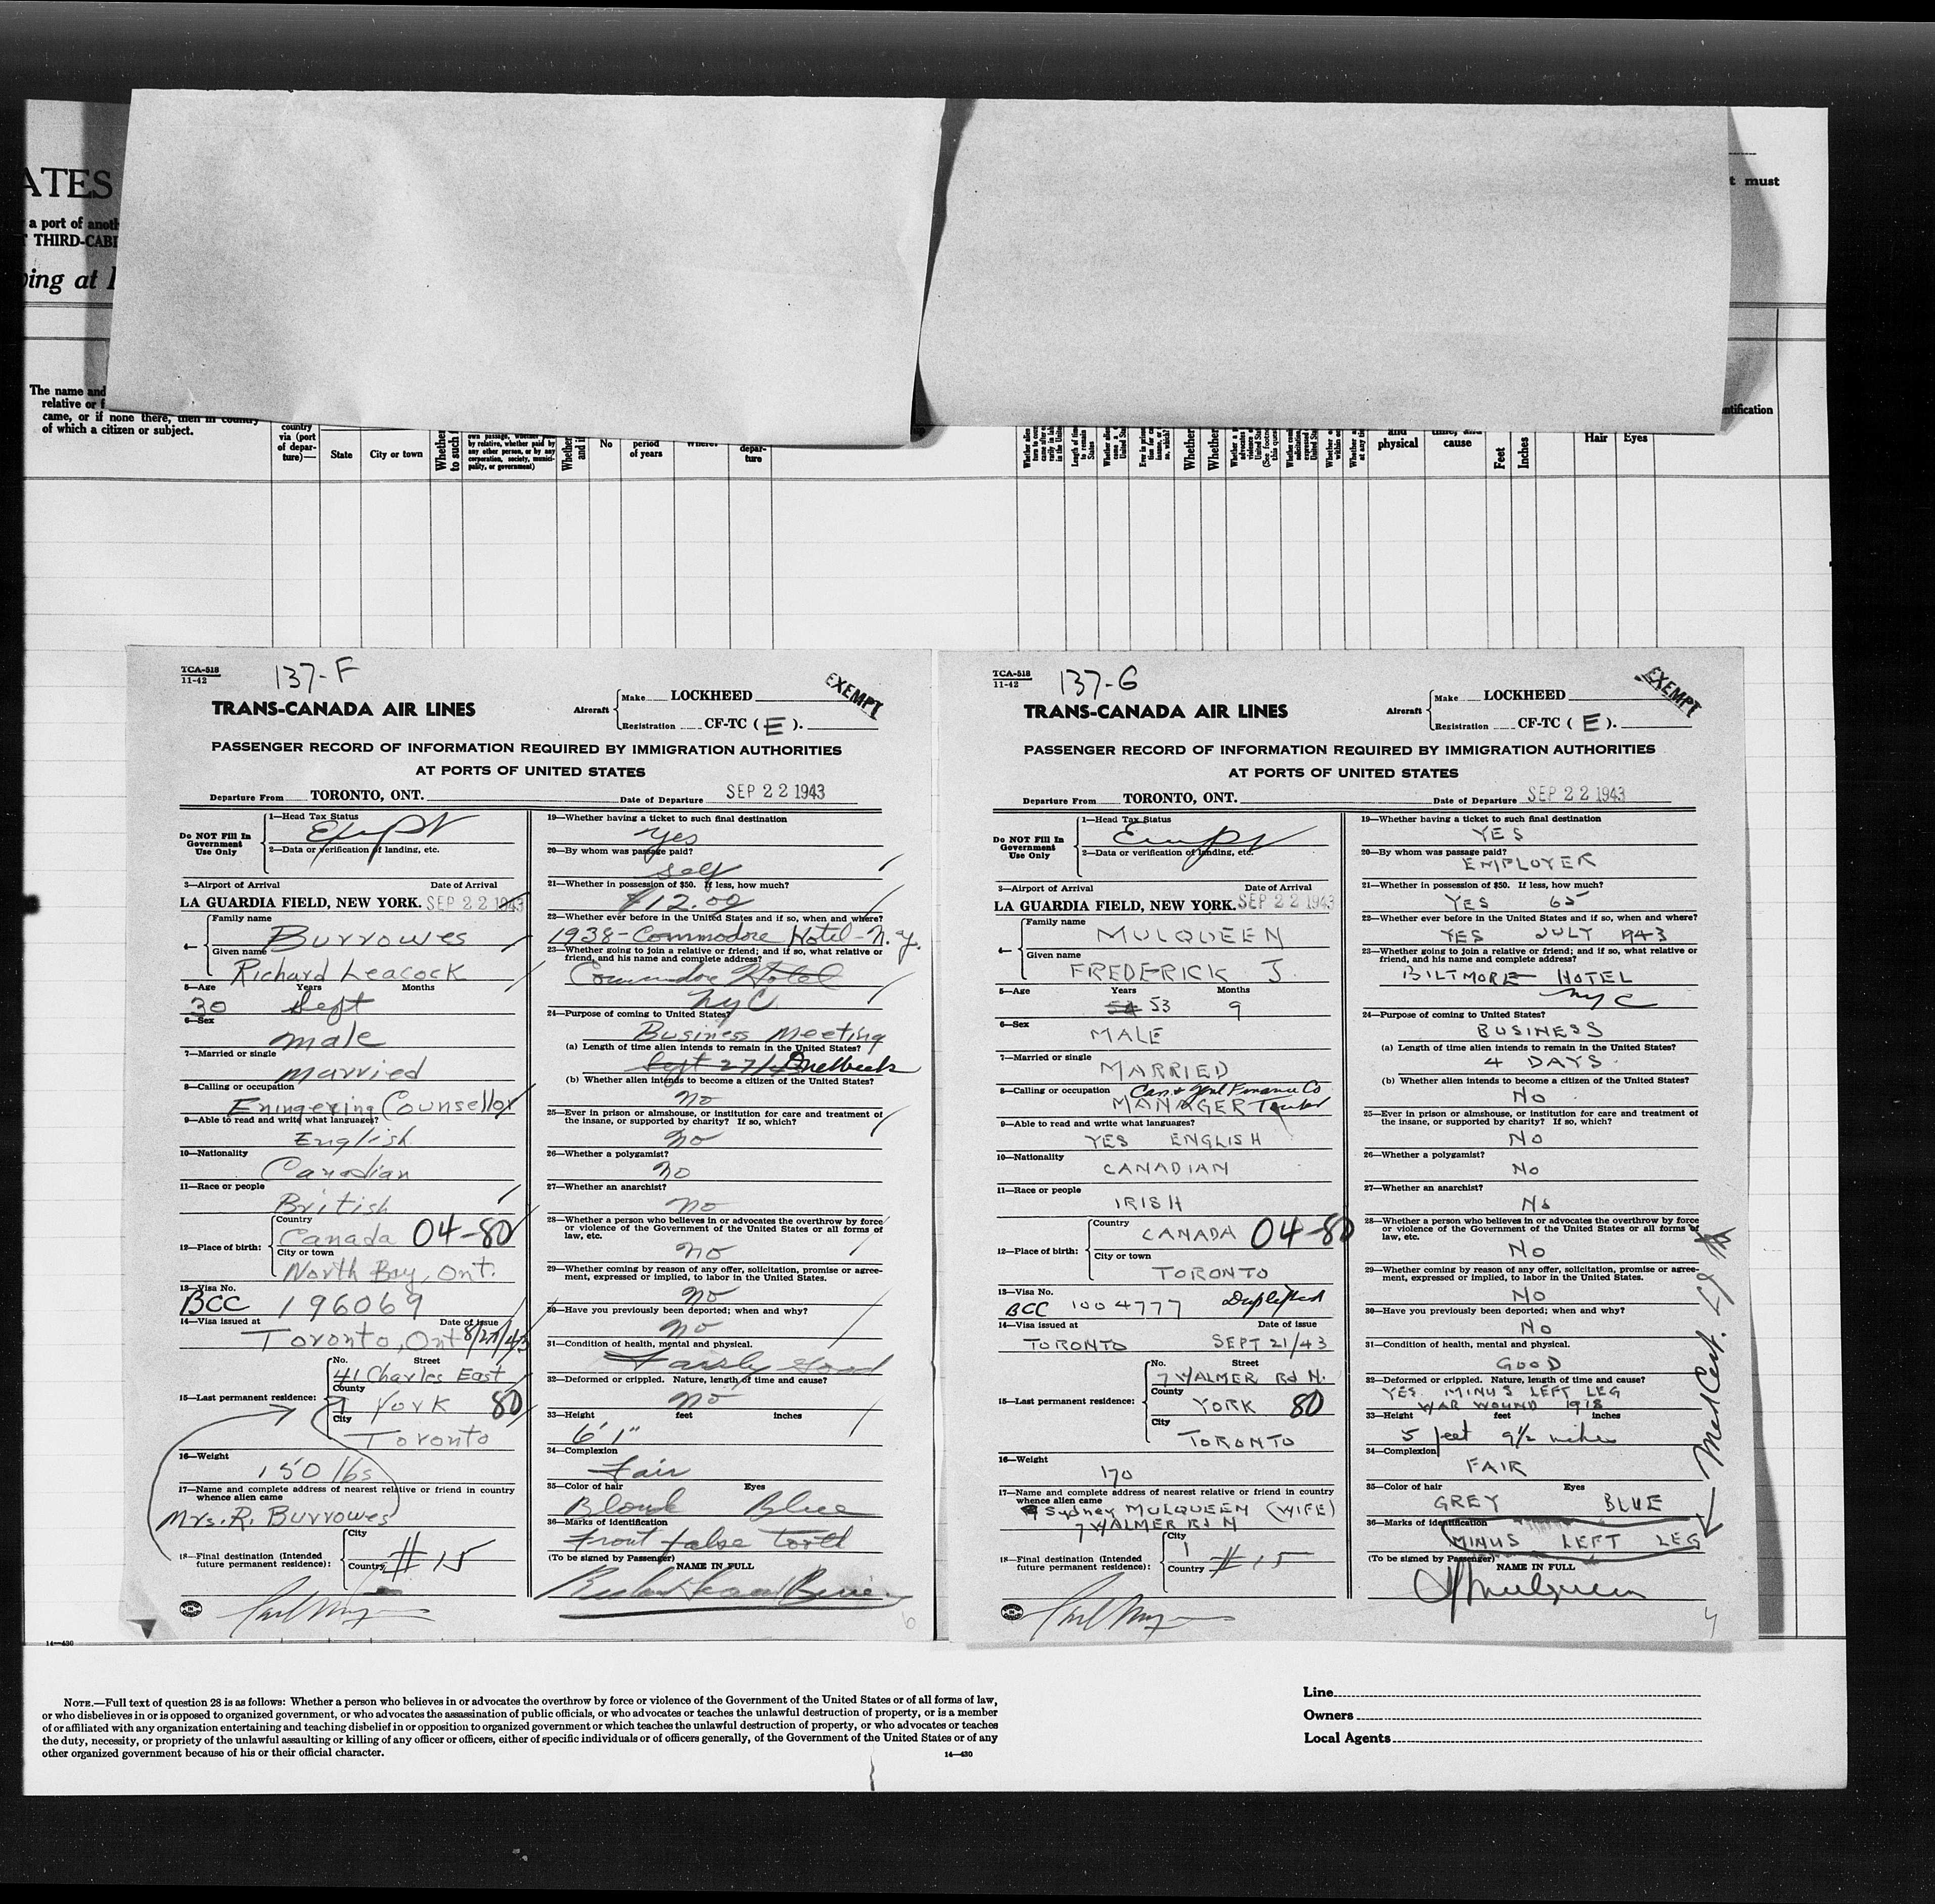 ATES
a port of anoth
T THIRD-CABI
ping at
t must
The name and
relative or f
came, or if none there, then in country
of which a citizen or subject.
country
via (port
of depar-
ture)—
State
City or town
Whether
to such f
own passage, whether paid
by relative, whether paid by
any other person, or by any
corporation, society, munici-
pality, or government)
No
period
of years
depar-
ture
Whether
Whether
and
physical
cause
Feet
Inches
Hair
Eyes
ntification
TCA-518
11-42
137-F
EXEMPT
TRANS-CANADA AIR LINES
Aircraft
Make LOCKHEED
Registration CF-TC ( E ).
PASSENGER RECORD OF INFORMATION REQUIRED BY IMMIGRATION AUTHORITIES
AT PORTS OF UNITED STATES
Departure From TORONTO, ONT.
Date of Departure SEP 22 1943
Do NOT Fill In
Government
Use Only
1—Head Tax Status
2—Data or verification of landing, etc.
3—Airport of Arrival Date of Arrival
LA GUARDIA FIELD, NEW YORK. SEP 22 1943
4—
Family name
Burrowes
Given name
Richard Leacock
5—Age Years Months
30 Sept
6—Sex
male
7—Married or single
married
8—Calling or occupation
Eningering Counsellor
9—Able to read and write what languages?
English
10—Nationality
Canadian
11—Race or people
British
12—Place of birth:
Country
Canada 04-80
City or town
North Bay, Ont.
13—Visa No.
BCC 196069
14—Visa issued at Date of issue
Toronto, Ont
15—Last permanent residence:
No. Street
41 Charles East
County
York 80
City
Toronto
16—Weight
150 lbs
17—Name and complete address of nearest relative or friend in country
whence alien came
Mrs. R. Burrowes
18—Final destination (Intended
future permanent residence):
City
Country
# 15
19—Whether having a ticket to such final destination
yes
20—By whom was passage paid?
self
21—Whether in possession of $50. If less, how much?
$12.00
22—Whether ever before in the United States and if so, when and where?
1938-Commodore Hotel-N.Y.
23—Whether going to join a relative or friend; and if so, what relative or
friend, and his name and complete address?
Commodore Hotel
NYC
24—Purpose of coming to United States?
Business Meeting
(a) Length of time alien intends to remain in the United States?
Sept 27/43 One week
(b) Whether alien intends to become a citizen of the United States?
no
25—Ever in prison or almshouse, or institution for care and treatment of
the insane, or supported by charity? If so, which?
no
26—Whether a polygamist?
no
27—Whether an anarchist?
no
28—Whether a person who believes in or advocates the overthrow by force
or violence of the Government of the United States or all forms of
law, etc.
no
29—Whether coming by reason of any offer, solicitation, promise or agree-
ment, expressed or implied, to labor in the United States.
no
30—Have you previously been deported; when and why?
no
31—Condition of health, mental and physical.
Fairly Good
32—Deformed or crippled. Nature, length of time and cause?
no
33—Height feet inches
6'1"
34—Complexion
Fair
35—Color of hair Eyes
Blond Blue
36—Marks of identification
Front false tooth
(To be signed by Passenger) NAME IN FULL
6
TCA-518
11-42
137-G
EXEMPT
TRANS-CANADA AIR LINES
Aircraft
Make LOCKHEED
Registration CF-TC ( E ).
PASSENGER RECORD OF INFORMATION REQUIRED BY IMMIGRATION AUTHORITIES
AT PORTS OF UNITED STATES
Departure From TORONTO, ONT.
Date of Departure SEP 22 1943
Do NOT Fill In
Government
Use Only
1—Head Tax Status
2—Data or verification of landing, etc.
3—Airport of Arrival Date of Arrival
LA GUARDIA FIELD, NEW YORK. SEP 22 1943
4—
Family name
MULQUEEN
Given name
FREDERICK J.
5—Age Years Months
54 53 9
6—Sex
MALE
7—Married or single
MARRIED
8—Calling or occupation Can & Genl Finance Co
MANAGER
9—Able to read and write what languages?
YES ENGLISH
10—Nationality
CANADIAN
11—Race or people
IRISH
12—Place of birth:
Country
CANADA 04-80
City or town
TORONTO
13—Visa No.
BCC 1004777
14—Visa issued at Date of issue
TORONTO SEPT 21/43
15—Last permanent residence:
No. Street
7 WALMER Rd N.
County
YORK 80
City
TORONTO
16—Weight
170
17—Name and complete address of nearest relative or friend in country
whence alien came
Sydney MULQUEEN (WIFE)
7 WALMER Rd N
18—Final destination (Intended
future permanent residence):
City
Country
# 15
19—Whether having a ticket to such final destination
YES
20—By whom was passage paid?
EMPLOYER
21—Whether in possession of $50. If less, how much?
YES 65
22—Whether ever before in the United States and if so, when and where?
YES JULY 1943
23—Whether going to join a relative or friend; and if so, what relative or
friend, and his name and complete address?
BILTMORE HOTEL
NYC
24—Purpose of coming to United States?
BUSINESS
(a) Length of time alien intends to remain in the United States?
4 DAYS.
(b) Whether alien intends to become a citizen of the United States?
No
25—Ever in prison or almshouse, or institution for care and treatment of
the insane, or supported by charity? If so, which?
No
26—Whether a polygamist?
No
27—Whether an anarchist?
No
28—Whether a person who believes in or advocates the overthrow by force
or violence of the Government of the United States or all forms of
law, etc.
No
29—Whether coming by reason of any offer, solicitation, promise or agree-
ment, expressed or implied, to labor in the United States.
No
30—Have you previously been deported; when and why?
No
31—Condition of health, mental and physical.
GOOD
32—Deformed or crippled. Nature, length of time and cause?
YES. MINUS LEFT LEG
WAR WOUND 1918
33—Height feet inches
5 feet 9½ inches
34—Complexion
FAIR
35—Color of hair Eyes
GREY BLUE
36—Marks of identification
MINUS LEFT LEG
(To be signed by Passenger) NAME IN FULL
Med Cert.
14—430
NOTE.—Full text of question 28 is as follows: Whether a person who believes in or advocates the overthrow by force or violence of the Government of the United States or of all forms of law,
or who disbelieves in or is opposed to organized government, or who advocates the assassination of public officials, or who advocates or teaches the unlawful destruction of property, or is a member
of or affiliated with any organization entertaining and teaching disbelief in or opposition to organized government or which teaches the unlawful destruction of property, or who advocates or teaches
the duty, necessity, or propriety of the unlawful assaulting or killing of any officer or officers, either of specific individuals or of officers generally, of the Government of the United States or of any
other organized government because of his or their official character.
14—430
Line
Owners
Local Agents